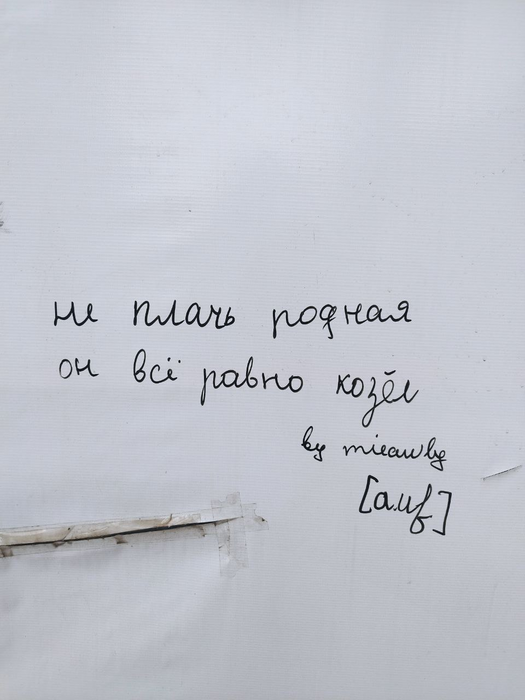 не плачь родная
он всё равно козёл
by mieawby
[a.uf]